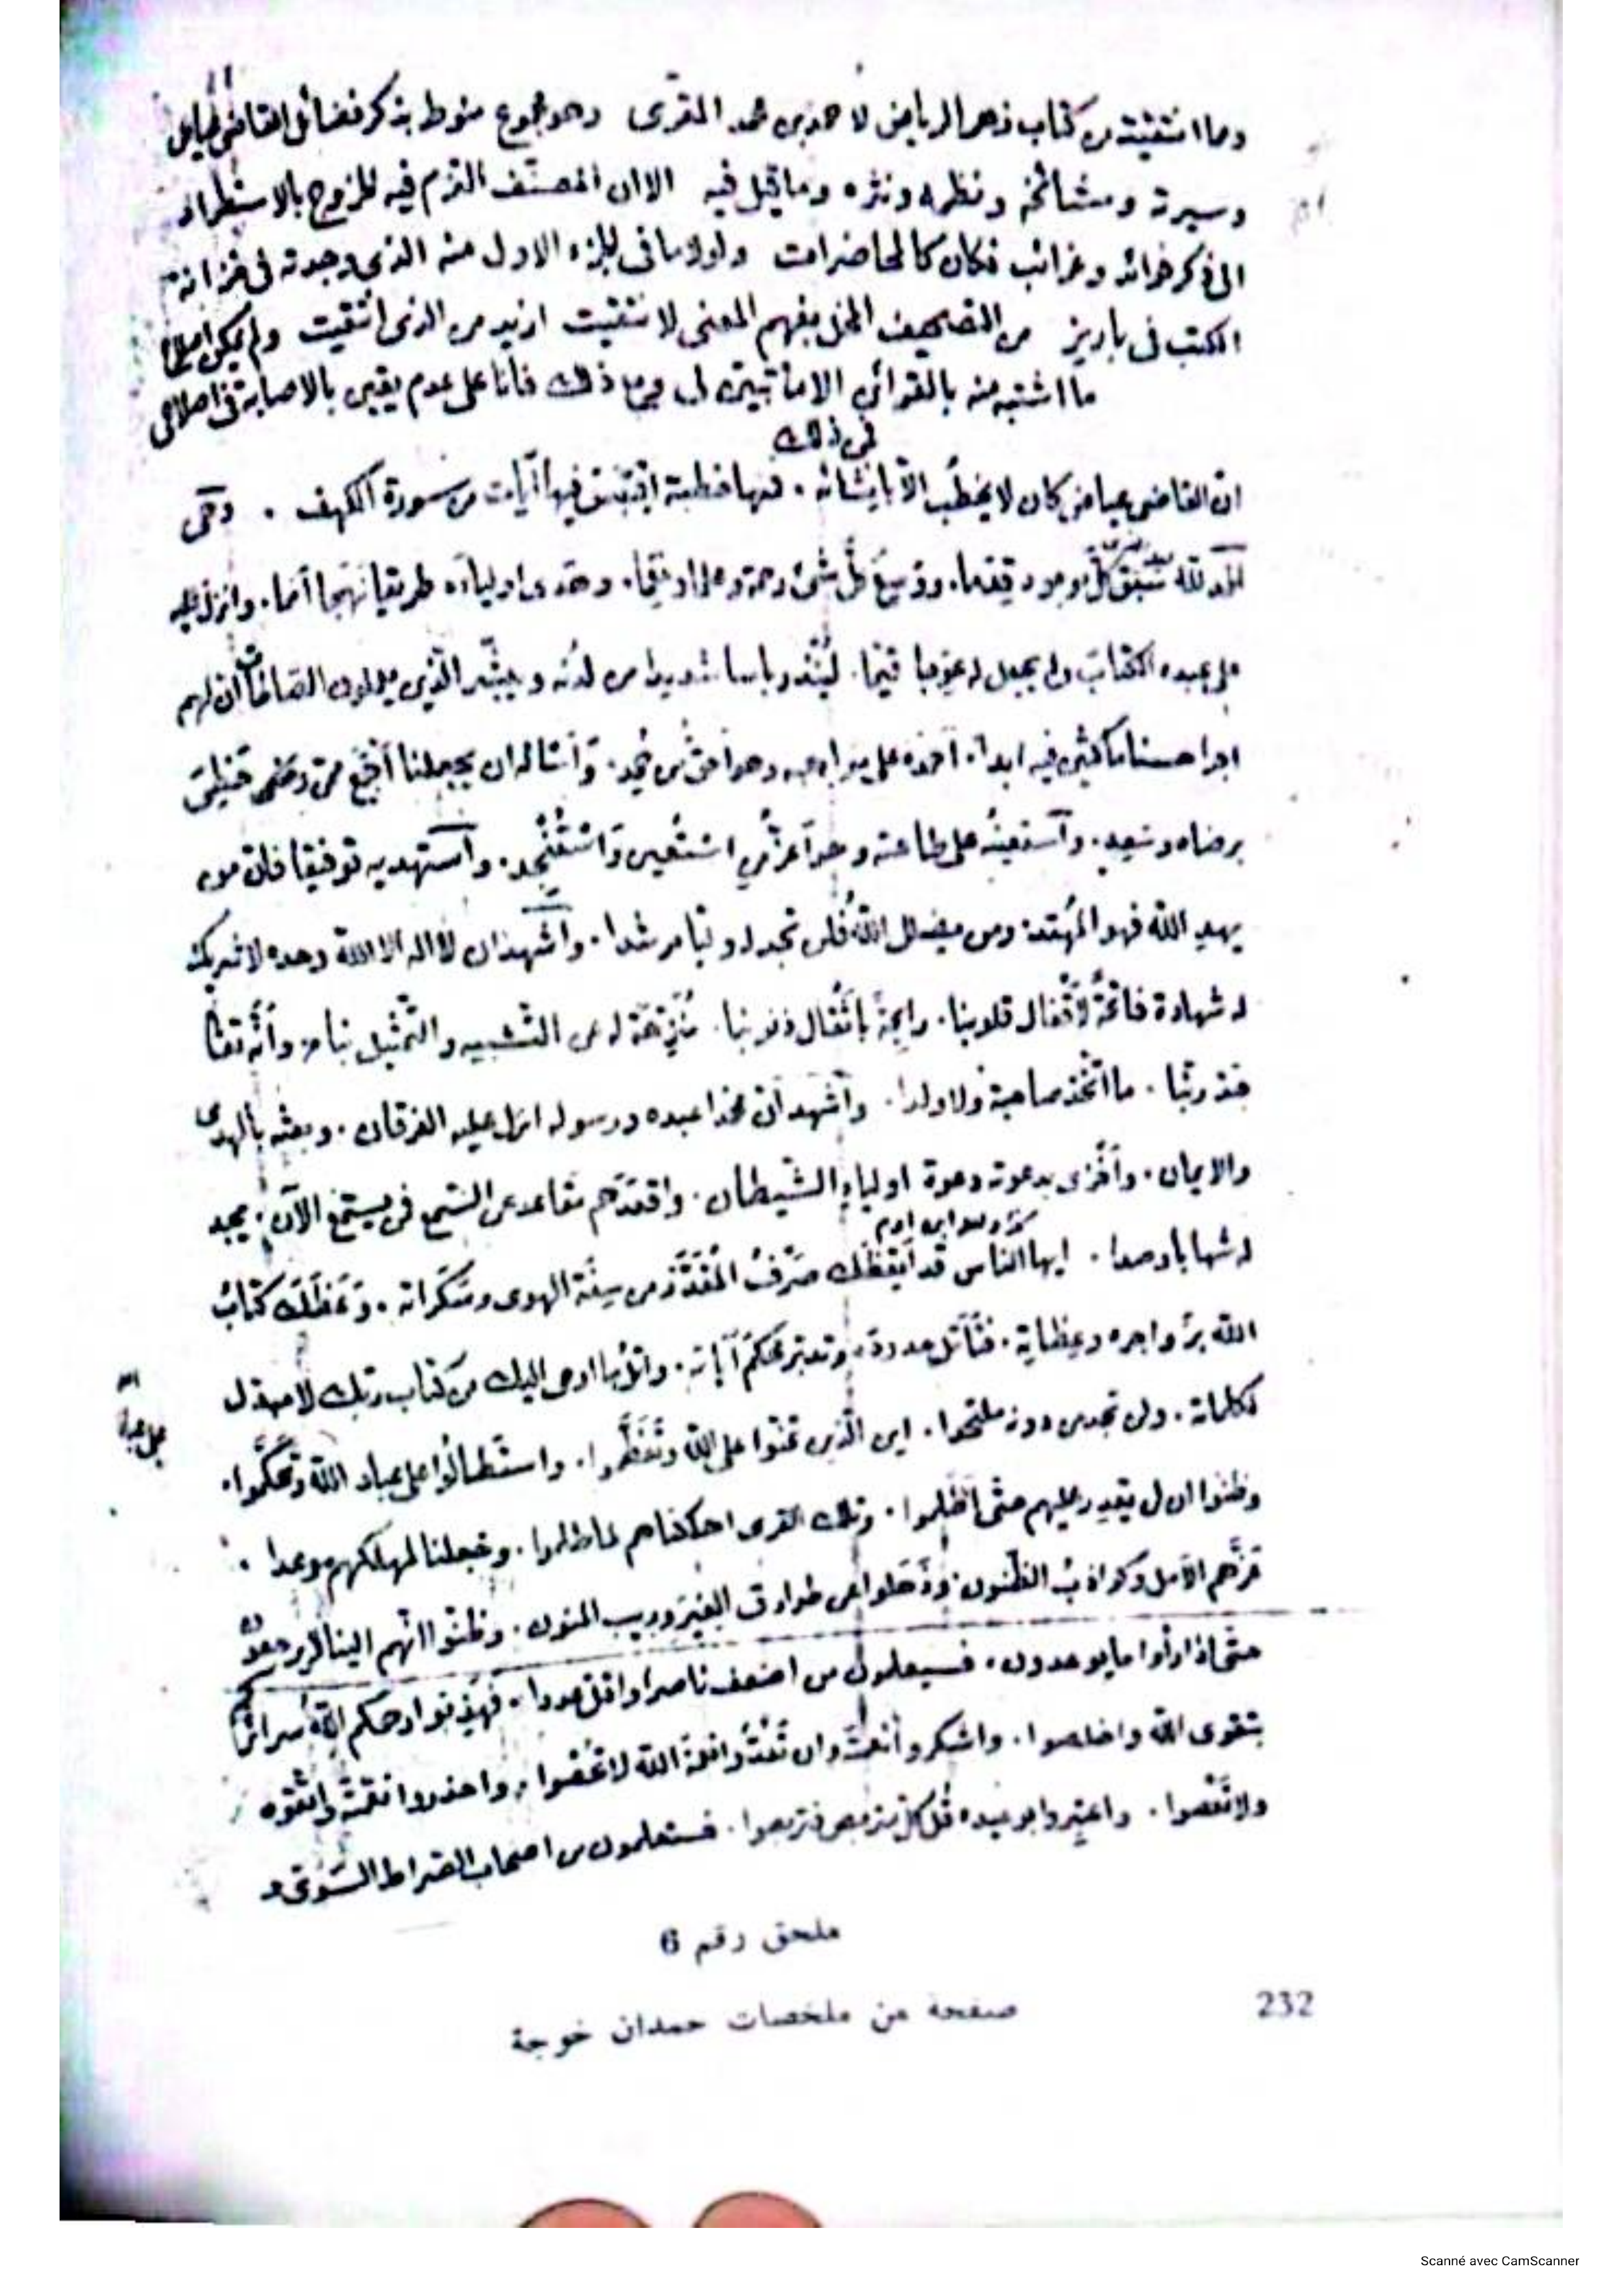 ومما انتقيته من كتاب زهر الرياض لاحمد بن محمد المقرى وهو مجموع منوط بذكر فضائل القاضى عياض
وسيرته ومشائخه ونظمه ونثره وما قيل فيه الا ان المصنف التزم فيه الخروج بالاستطراد
الى ذكر فوائد وغرائب فكان كالمحاضرات ولولا ما فى الجزء الاول منه الذى وجدته فى خزانة
الكتب فى باريز من التصحيف المخل بفهم المعنى لانتقيت ازيد من الذى انتقيت ولم يمكن اصلاح
ما اشتبه منه بالقرائن الا ما تبين لى ومع ذلك فانا على عدم يقين بالاصابة فى اصلاحى
فى ذلك
ان القاضى عياض كان لا يخطب الا بانشائه . فمنها خطبة اقتبس فيها آيات من سورة الكهف . وهى
الحمد لله سبق كل موجود قدما . ووسع كل شئ رحمة وعلما . وهدى اولياءه طريقا نهجا امما . وانزل
على عبده الكتاب ولم يجعل له عوجا قيما . لينذر باسا شديدا من لدنه ويبشر الذين يعملون الصالحات ان لهم
اجرا حسنا ماكثين فيه ابدا . احمده على مواهبه وهو احق من حمد . واساله ان يجعلنا اجمع ممن حظى
برضاه وسعد . واستعينه على طاعته وهو اعز من استعين واستنجد . واستهديه توفيقا فان من
يهد الله فهو المهتد ومن يضلل الله فلن تجد له وليا مرشدا . واشهد ان لا اله الا الله وحده لا شريك
له شهادة فاتحة لاقفال قلوبنا . راجحة باثقال ذنوبنا . منزهة له عن التشبيه والتمثيل بنا . وانه تعالى
جد ربنا . ما اتخذ صاحبة ولا ولدا . واشهد ان محمدا عبده ورسوله انزل عليه الفرقان . وبعثه بالهدى
والايمان . واخزى بدعوته دعوة اولياء الشيطان . واقعدهم مقاعد عن السمع فمن يستمع الآن يجد
له شهابا رصدا . ايها الناس قد ايقظك صرف القدر من سنة الهوى وسكراته . ووعظك كتاب
الله بزواجره وعظاته . فتأمل حدوده وتدبر محكم آياته . واتل ما اوحى اليك من كتاب ربك لا مبدل
لكلماته . ولن تجد من دونه ملتحدا . اين الذين عتوا على الله وتعظموا . واستطالوا على عباد الله وتحكموا .
وظنوا ان لن يقدر عليهم حتى اظلموا . وتلك القرى اهلكناهم لما ظلموا . وجعلنا لمهلكهم موعدا .
غرهم الامل وكواذب الظنون . وذهلوا عن طوارق الغير وريب المنون . وظنوا انهم الينا لا يرجعون
حتى اذا رأوا ما يوعدون . فسيعلمون من اضعف ناصرا واقل عددا . فهذبوا رحمكم الله سرائركم
بتقوى الله واخلصوا . واشكروا نعمته وان تعدوا نعمة الله لا تحصوا . واحذروا نقمته واتقوه
ولا تعصوا . واعتبروا بوعيده قل كل متربص فتربصوا . فستعلمون من اصحاب الصراط السوى و
ملحق رقم 6
صفحة من ملخصات حمدان خوجة
232
Scanné avec CamScanner